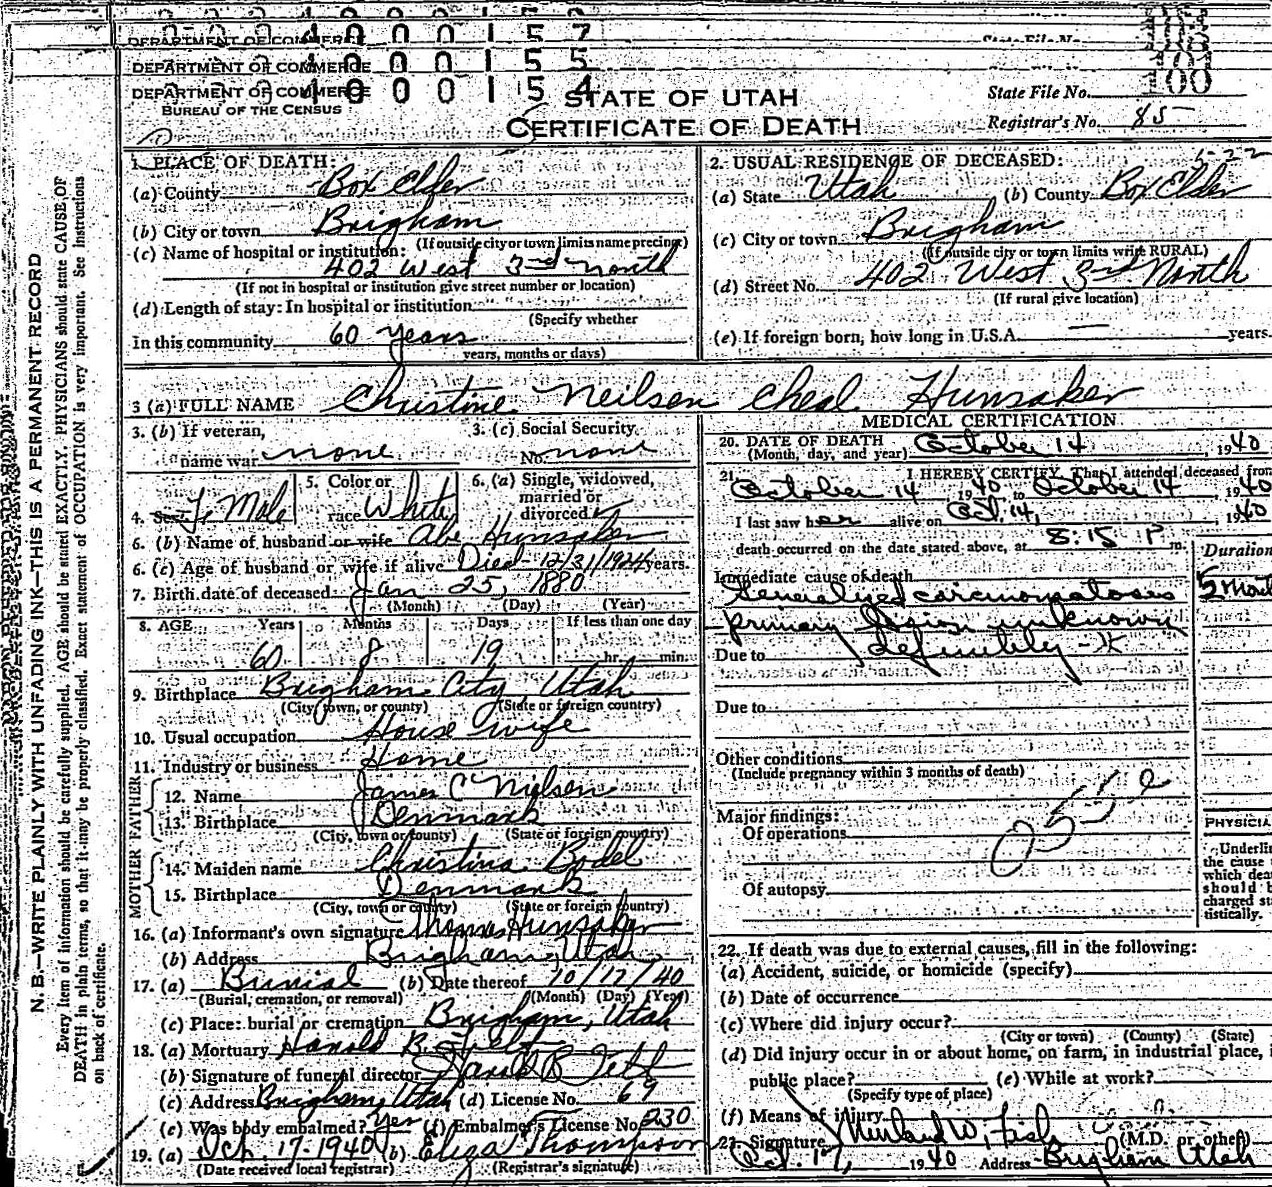 DEPARTMENT OF COMMERCE
DEPARTMENT OF COMMERCE
DEPARTMENT OF COMMERCE
BUREAU OF THE CENSUS
STATE OF UTAH
CERTIFICATE OF DEATH
State File No. 100
Registrar's No. 85
1. PLACE OF DEATH:
(a) County Box Elder
(b) City or town Brigham
(If outside city or town limits name precinct)
(c) Name of hospital or institution:
402 West 3rd North
(If not in hospital or institution give street number or location)
(d) Length of stay: In hospital or institution
(Specify whether
In this community 60 years
years, months or days)
2. USUAL RESIDENCE OF DECEASED: 5-22
(a) State Utah (b) County Box Elder
(c) City or town Brigham
(If outside city or town limits write RURAL)
(d) Street No. 402 West 3rd North
(If rural give location)
(e) If foreign born, how long in U.S.A. — years.
3 (a) FULL NAME Christine Neilsen Cheal Hunsaker
3. (b) If veteran, name war none
3. (c) Social Security No. none
4. Sex Fe Male
5. Color or race White
6. (a) Single, widowed, married or divorced
6. (b) Name of husband or wife Abe Hunsaker
6. (c) Age of husband or wife if alive Died-12/31/1924 years.
7. Birth date of deceased Jan 25, 1880
(Month) (Day) (Year)
8. AGE Years Months Days If less than one day
60 8 19 hr. min.
9. Birthplace Brigham City, Utah
(City, town, or county) (State or foreign country)
10. Usual occupation House wife
11. Industry or business Home
FATHER
12. Name James C Nielsen
13. Birthplace Denmark
(City, town or county) (State or foreign country)
MOTHER
14. Maiden name Christina Bodel
15. Birthplace Denmark
(City, town or county) (State or foreign country)
16. (a) Informant's own signature Thomas Hunsaker
(b) Address Brigham, Utah
17. (a) Burial (b) Date thereof 10/17/40
(Burial, cremation, or removal) (Month) (Day) (Year)
(c) Place: burial or cremation Brigham, Utah
18. (a) Mortuary Harold B. Felt
(b) Signature of funeral director Harold B Felt
(c) Address Brigham, Utah (d) License No. 69
(e) Was body embalmed? Yes (f) Embalmer's License No. 230
19. (a) Oct. 17-1940 (b) Eliza Thompson
(Date received local registrar) (Registrar's signature)
MEDICAL CERTIFICATION
20. DATE OF DEATH October 14, 1940
(Month, day, and year)
21. I HEREBY CERTIFY, That I attended deceased from
October 14 1940, to October 14, 1940
I last saw her alive on Oct. 14, 1940
death occurred on the date stated above, at 8:15 P m.
Duration
Immediate cause of death
Generalized carcinomatosis 5 Mont
primary lesion unknown
Due to definitely
Due to
Other conditions
(Include pregnancy within 3 months of death)
055
Major findings:
Of operations
Of autopsy
PHYSICIA
Underli
the cause
which dea
should b
charged sta
tistically.
22. If death was due to external causes, fill in the following:
(a) Accident, suicide, or homicide (specify)
(b) Date of occurrence
(c) Where did injury occur?
(City or town) (County) (State)
(d) Did injury occur in or about home, on farm, in industrial place, i
public place? (e) While at work?
(Specify type of place)
(f) Means of injury
23. Signature (M.D. or other)
Oct. 17, 1940 Address Brigham Utah
N. B.—WRITE PLAINLY WITH UNFADING INK—THIS IS A PERMANENT RECORD
Every item of information should be carefully supplied. AGE should be stated EXACTLY. PHYSICIANS should state CAUSE OF
DEATH in plain terms, so that it may be properly classified. Exact statement of OCCUPATION is very important. See Instructions
on back of certificate.